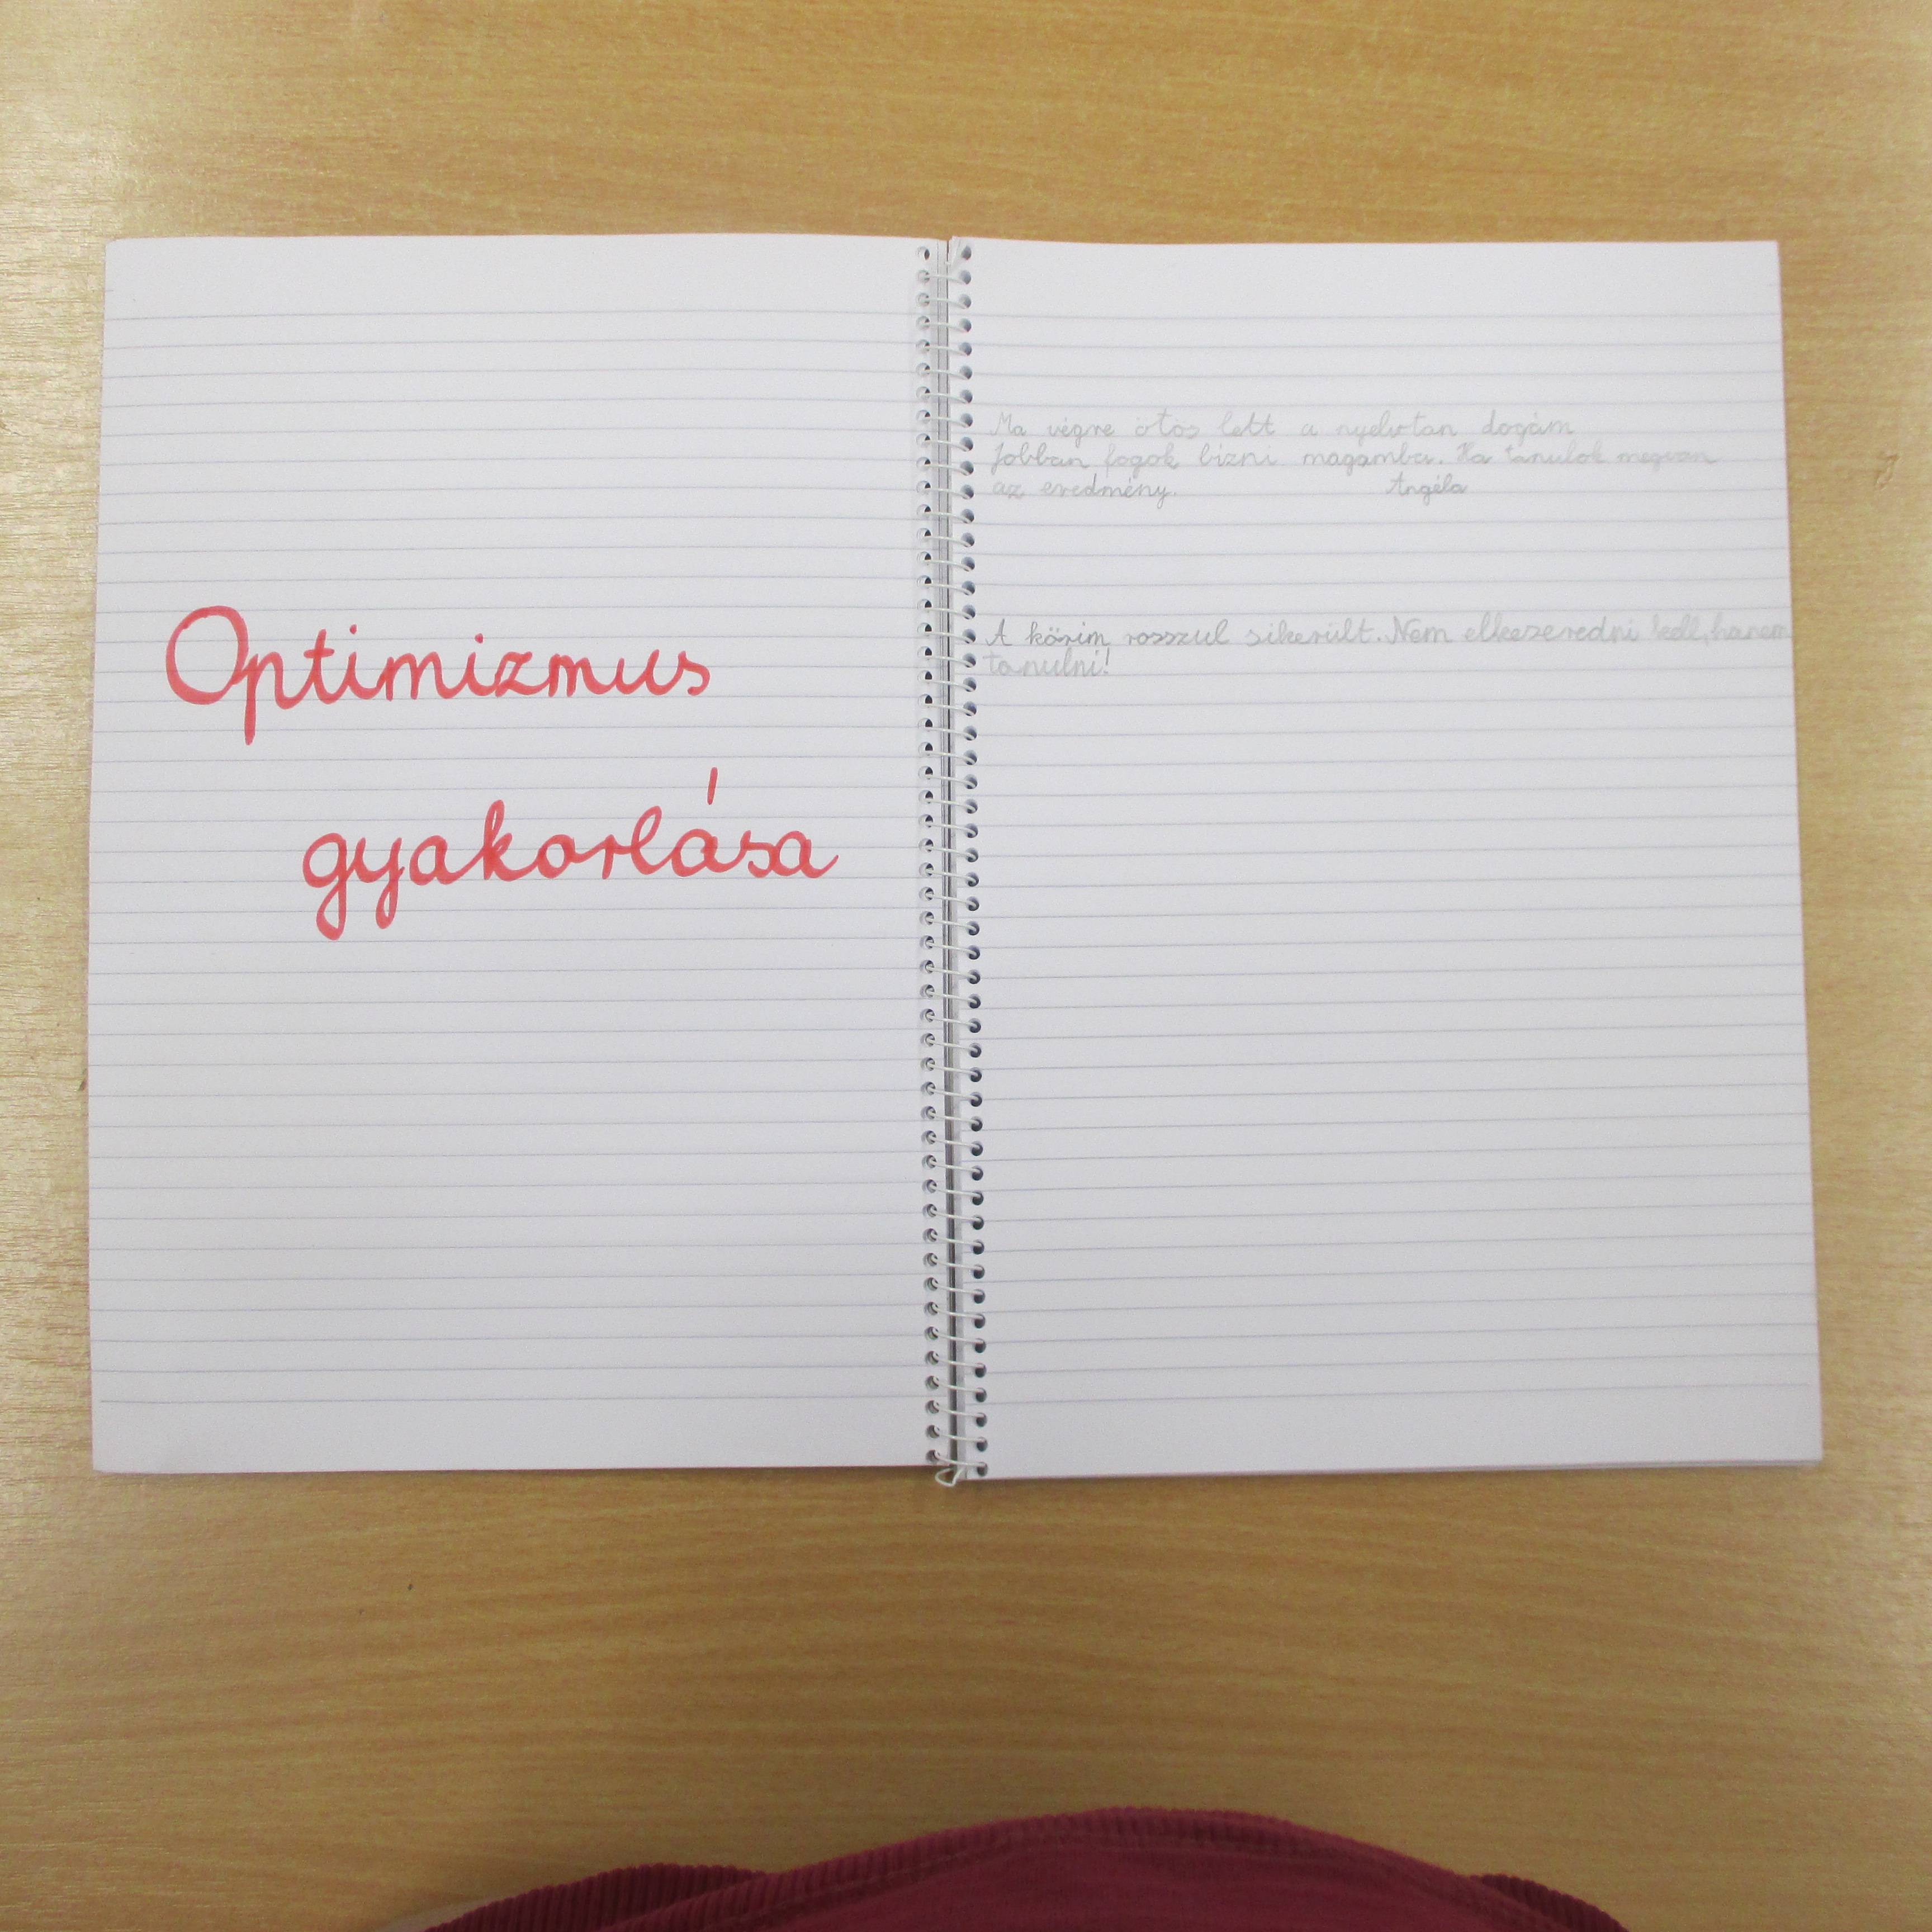 Optimizmus
gyakorlása
Ma végre ötös lett a nyelvtan dogám
Jobban fogok bízni magamba. Ha tanulok megvan
az eredmény. Angéla
A körim rosszul sikerült. Nem elkeseredni kell, hanem
tanulni!